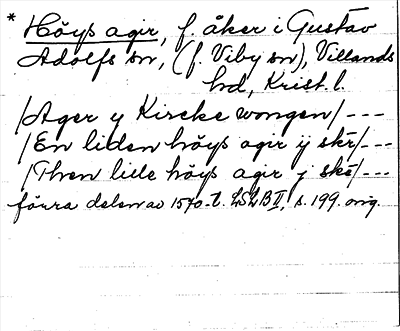 * Höys agir, f. åker i Gustav
Adolfs sn, (f. Viby sn), Villands
hd, Krist. l.
/Ager y Kircke wongen/ ---
/En liden höys agir ij skr/ ---
/Then lille höys agir j ske/ ---
förra delen av 1570-t. LSLB II, s. 199. orig.